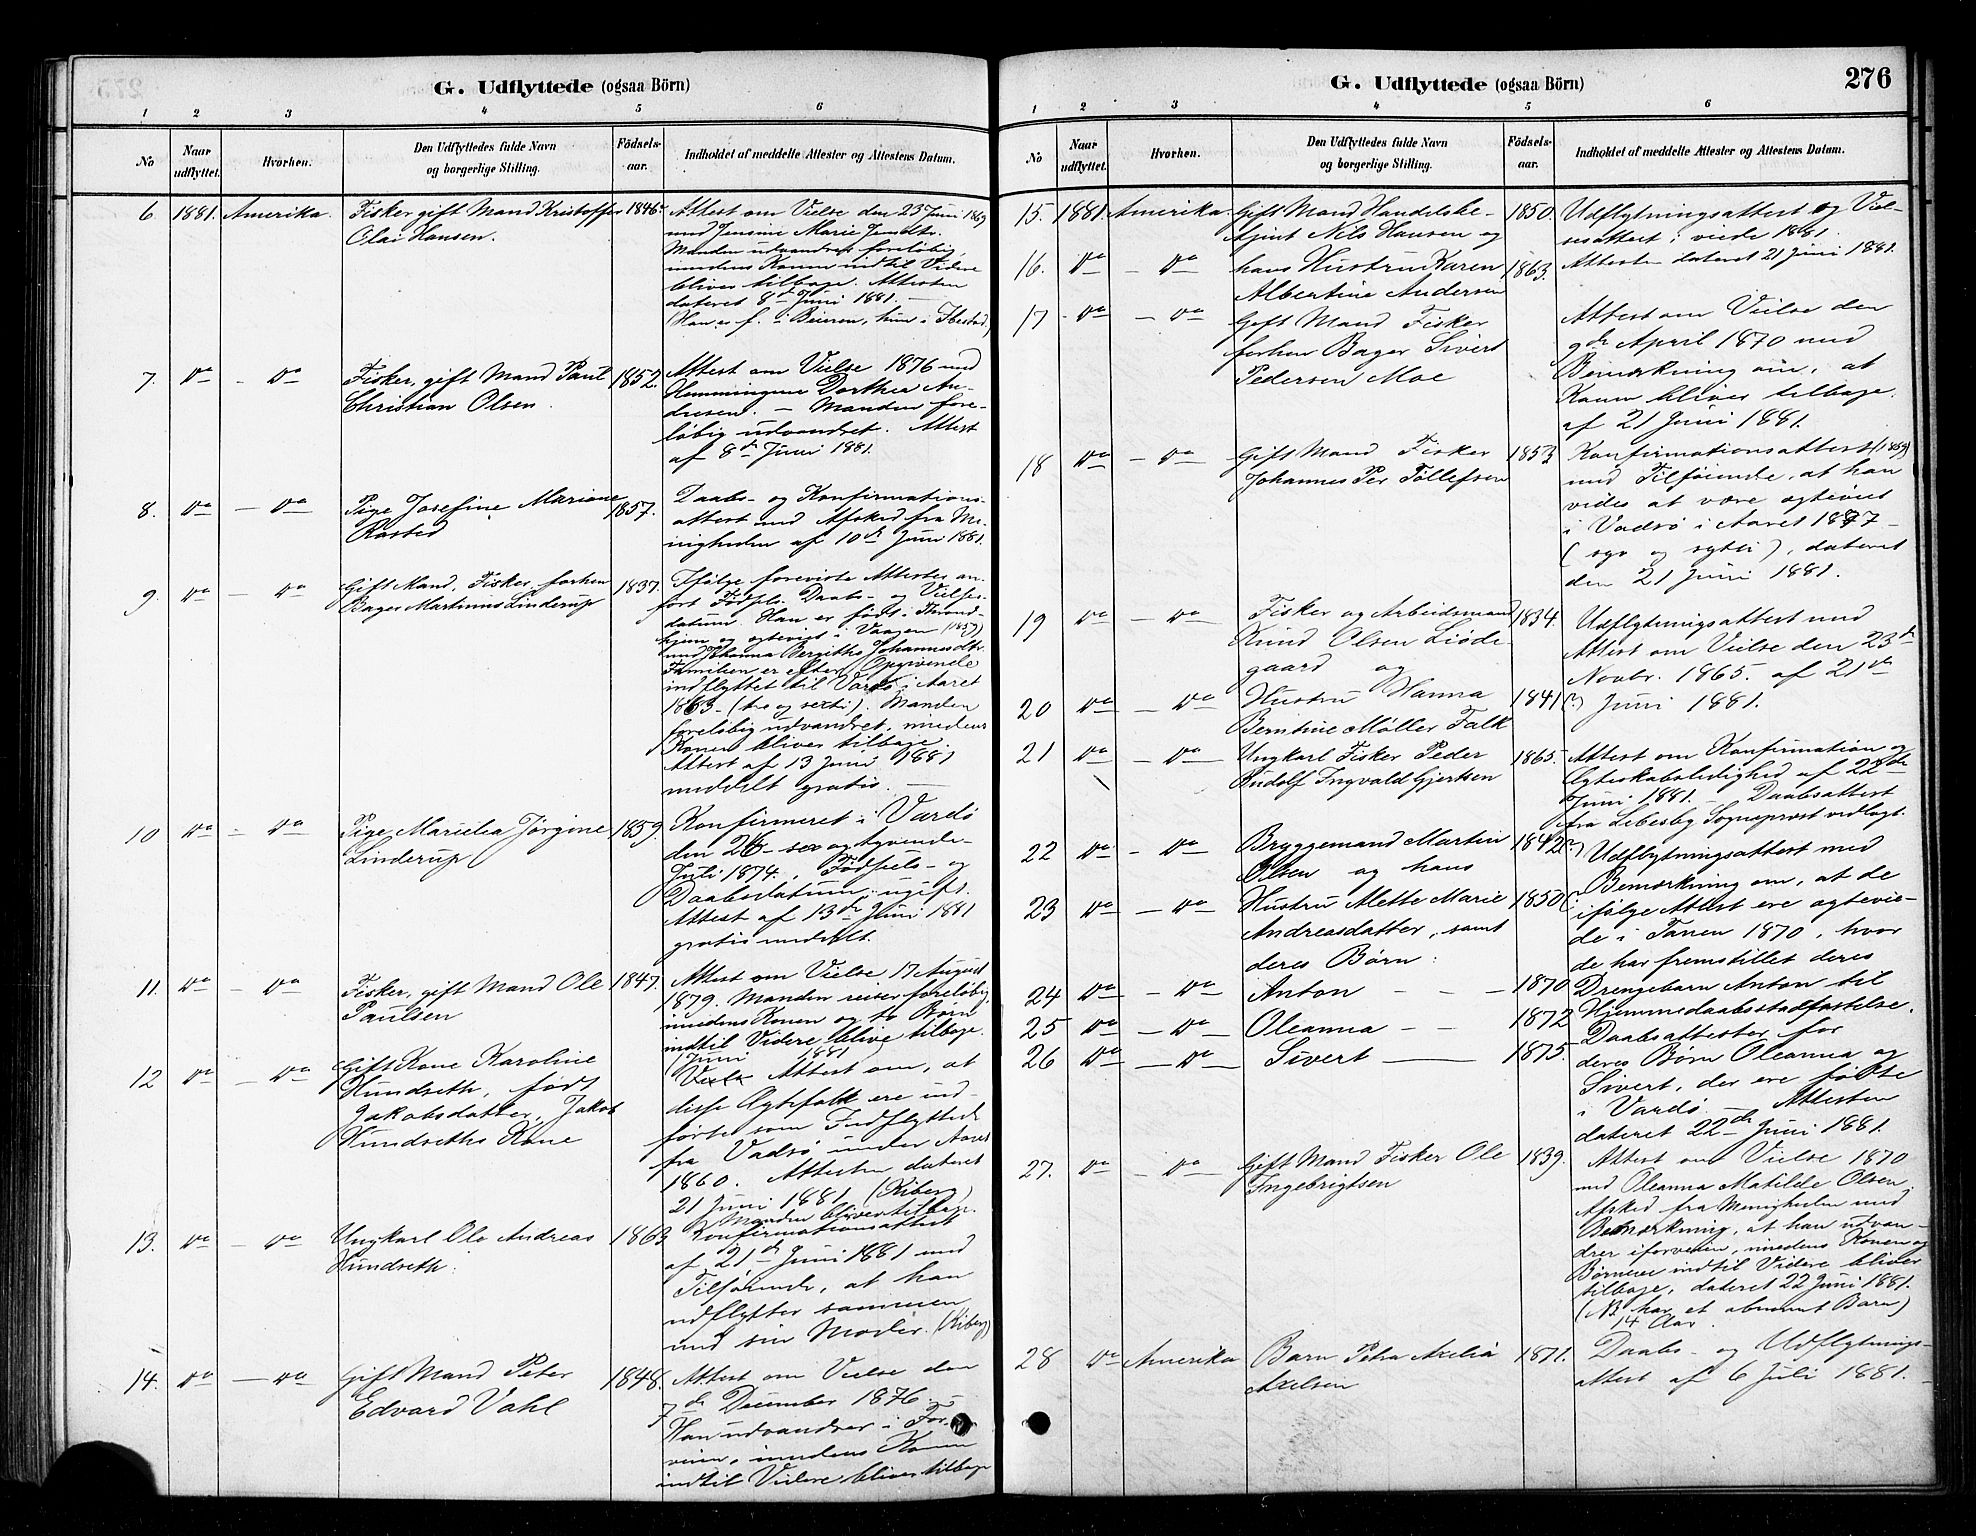 G. Udflyttede (ogsaa Börn)
1 2 3 4 5 6
No
Naar udflyttet.
Hvorhen.
Den Udflyttedes fulde Navn og borgerlige Stilling.
Födsels-aar.
Indholdet af meddelte Attester og Attestens Datum.
6. 1881. Amerika. Fisker gift Mand Kristoffer 1846. Attest om Vielse den 23 Juni 1869
Olai Hansen. med Jensine Marie
Manden udvandrer foreløbig,
medens Konen indtil Videre
bliver tilbage. Attesten
dateret 8de Juni 1881. —
(Han er f. i Beieren, hun i Ibestad)
7. do - do Fisker, gift Mand Paul 1852. Attest om Vielse 1876 med
Christian Olsen. Hemmingine Dorthea An-
dresen. — Manden fore-
løbig udvandret. Attest
af 8de Juni 1881.
8. do — do Pige Josefine Mariane 1857. Daabs- og Konfirmations-
Rasted attest med Afsked fra Me-
nigheden af 10de Juni 1881.
9. do — do Gift Mand, Fisker, forhen 1837. Ifølge foreviste Attester an-
Bager Martinus Linderup ført Fødsels- Daabs- og Vielses-
datum. Han er født i Thrond-
hjem og ægteviet i Vaagen (1859)
med Johanna Bergitha Johannesdtr.
Familien er efter Opgivende
indflyttet til Vardø i Aaret
1863 - (tre og sexti). Manden
foreløbig udvandret, medens
Konen bliver tilbage.
Attest af 13 Juni 1881
meddelt gratis. —
10 do - do Pige Marielia Jørgine 1859. Konfirmeret i Vardø
Linderup den 26 - sex og tyvende -
Juli 1874. Fødsels- og
Daabsdatum: ugift.
Attest af 13de Juni 1881
gratis meddelt.
11. do — do Fisker, gift Mand Ole 1847. Attest om Vielse 17 August
Paulsen 1879. Manden reiser foreløbig,
medens Konen og to Børn
indtil Videre blive tilbage.
(Juni 1881)
12 do — do Gift Kone Karoline Attest om, at
Hundseth, født disse Ægtefolk ere ind-
Jakobsdatter, Jakob førte som Indflyttede
Hundseths Kone fra Vadsø under Aaret
1860. Attesten dateret
21 Juni 1881. (Kiberg)
Manden bliver tilbage.
13. do — do Ungkarl Ole Andreas 1863 Konfirmationsattest
Hundseth. af 21de Juni 1881 med
Tilføiende, at han
udflytter sammen
med sin Moder. (Kiberg)
14. do — do Gift Mand Peter 1848. Attest om Vielse den
Edvard Vahl 7de December 1876.
Han udvandrer i For-
veien, medens Konen
indtil Videre bliver tilbage
G. Udflyttede (ogsaa Börn)
276
1 2 3 4 5 6
No
Naar udflyttet.
Hvorhen.
Den Udflyttedes fulde Navn og borgerlige Stilling.
Födsels-aar.
Indholdet af meddelte Attester og Attestens Datum.
15. 1881. Amerika. Gift Mand Handelsbe- 1850. Udflytningsattest og Viel-
tjent Nils Hansen og sesattest; viede 1881.
16. do — do hans Hustru Karen 1863. Attesten dateret 21 Juni 1881.
Albertine Andersen
17 do — do Gift Mand Fisker Attest om Vielse den
forhen Bager Sivert 9de April 1870 med
Pedersen Moe Bemærkning om, at
Konen bliver tilbage.
af 21 Juni 1881.
18 do — do Gift Mand Fisker 1853 Konfirmationsattest
Johannes Per Tollefsen med Tilføiende, at han
vides at være ægteviet
i Vadsø i Aaret 1877 -
( syv og sytti), dateret
den 21 Juni 1881.
19 do — do Fisker og Arbeidsmand 1834. Udflytningsattest med
Knud Olsen Liøde- Attest om Vielse den 23de
gaard og Novbr. 1865. af 21de
20 do — do Hustru Hanna 1841(?) Juni 1881.
Berntine Møller Falk
21 do — do Ungkarl Fisker Peder 1865. Attest om Konfirmation og
Rudolf Ingvald Gjertsen Ægteskabsledighed af 22de
Juni 1881. — Daabsattest
fra Lebesby Sogneprest vedlagt.
22 do — do Bryggemand Martin 1842(?) Udflytningsattest med
Olsen og hans Bemærkning om, at de
23 do — do Hustru Mette Marie 1850(?) ifølge Attest ere ægtevie-
Andreasdatter, samt de i Tanen 1870, hvor
deres Børn: de har fremstillet deres
24 do — do Anton — — — 1870 Drengebarn Anton til
25 do — do Oleanna — — 1872 Hjemmedaabsstadfæstelse.
Daabsattester for
26 do — do Sivert — 1875. deres Børn Oleanna og
Sivert, der ere fødte
i Vardø. — Attesten
dateret 22de Juni 1881.
27. do — do Gift Mand Fisker Ole 1839. Attest om Vielse 1870
Ingebrigtsen med Oleanna Matilde Olsen.
Afsked fra Menigheden med
Bemærkning, at han udvan-
drer iforveien, medens Konen og
Børnene indtil Videre bliver
tilbage, dateret 22 Juni 1881.
(NB har et Barn)
14 Aar.
28 do Amerika Barn Petra Axelia 1871. Daabs- og Udflytnings-
Axelsen attest af 6 Juli 1881. -